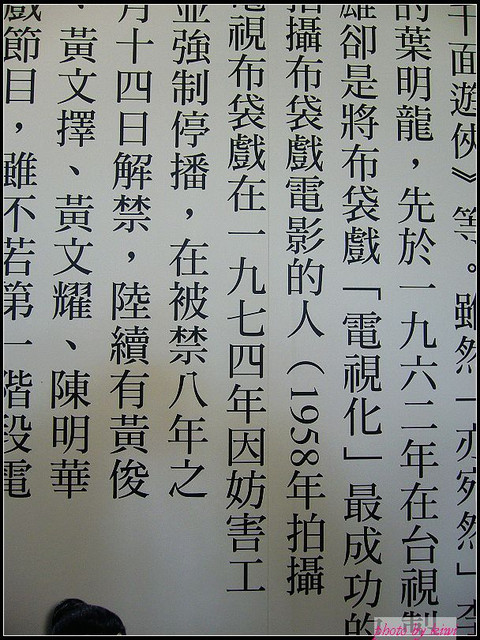 千面遊俠》等。雖然「亦宛然」李
的葉明龍，先於一九六二年在台視製
雄卻是將布袋戲「電視化」最成功的
拍攝布袋戲電影的人（1958年拍攝
電視布袋戲在一九七四年因妨害工
並強制停播，在被禁八年之
月十四日解禁，陸續有黃俊
、黃文擇、黃文耀、陳明華
戲節目，雖不若第一階段電
photo by